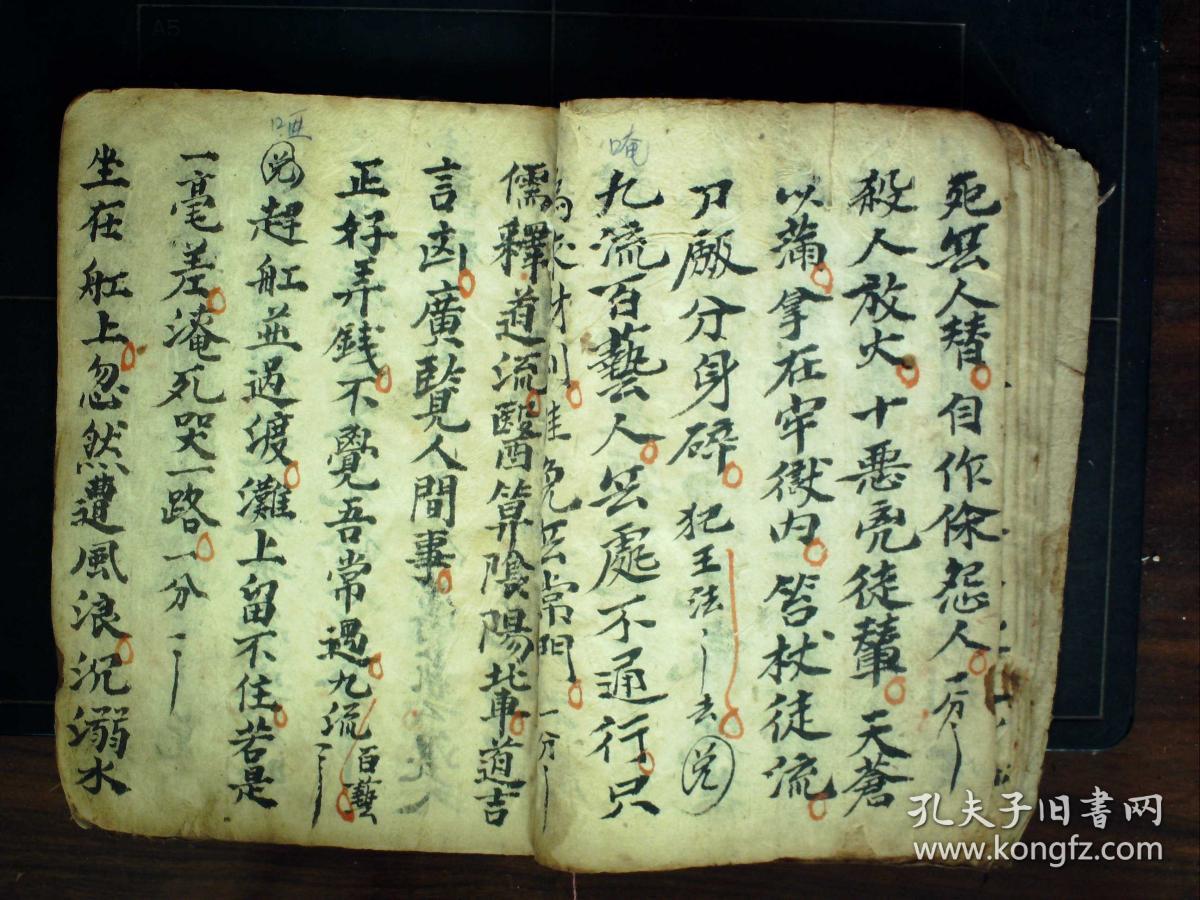 死無人替自作你怨人一分
殺人放火十惡兇徒輩天蒼
以蒲拿在牢獄内笞杖徒流
刀廒分身碎犯王法去兑
唵
九流百藝人無處不通行只
無常門一分
儒釋道流醫算陰陽北車道吉
言凶廣覽人間事
正好弄錢不覺吾常遇九流百藝
啞
兑趕舡並過渡灘上留不住若是
一毫差淹死哭一路一分
坐在舡上忽然遭風浪沉溺水
孔夫子旧书网
www.kongfz.com
A5